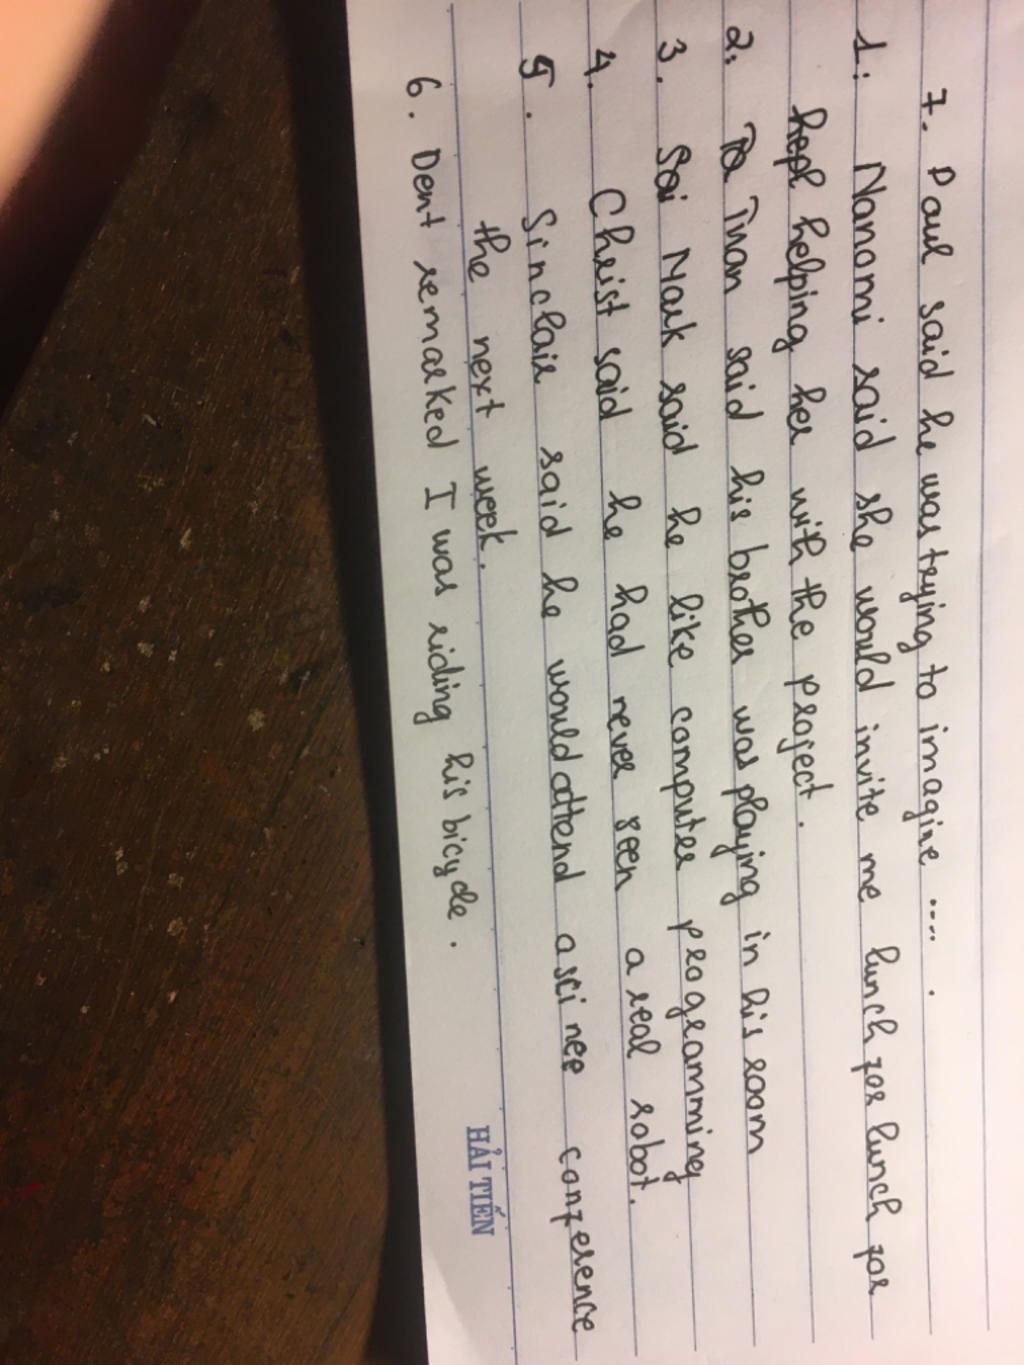 7. Paul said he was trying to imagine .... .
1: Nanami said she would invite me lunch for lunch for
hepl helping her with the project.
2: Ta Tuan said his brother was playing in his room
3. Sai Mark said he like computer programming
4. Christ said he had never seen a real robot.
5. Sinclair said he would attend a scinee conference
the next week.
6. Dent remarked I was riding his bicycle.
HẢI TIẾN